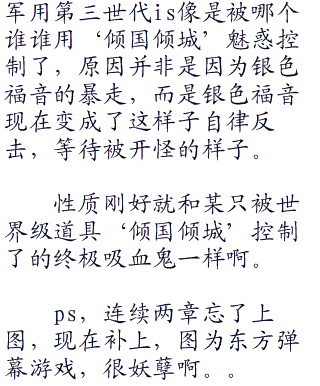 军用第三世代is像是被哪个
谁谁用‘倾国倾城’魅惑控
制了，原因并非是因为银色
福音的暴走，而是银色福音
现在变成了这样子自律反
击，等待被开怪的样子。
性质刚好就和某只被世
界级道具‘倾国倾城’控制
了的终极吸血鬼一样啊。
ps，连续两章忘了上
图，现在补上，图为东方弹
幕游戏，很妖孽啊。。